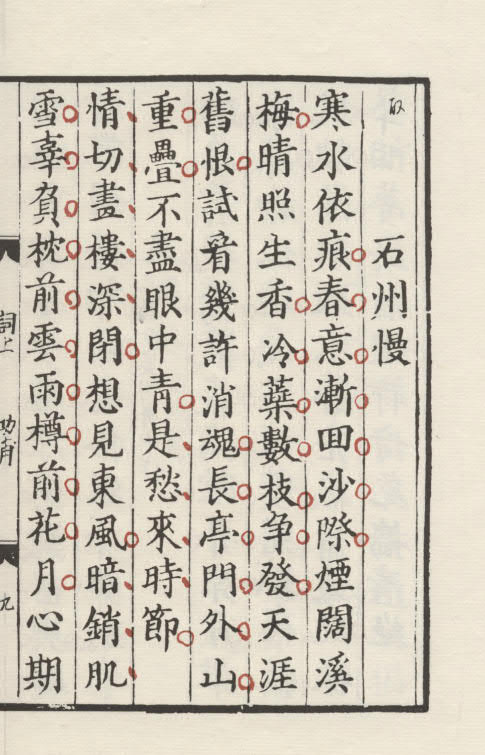 石州慢
寒水依痕春意漸回沙際煙闊溪
梅晴照生香冷蘂數枝争發天涯
舊恨試看幾許消魂長亭門外山
重疊不盡眼中青是愁來時節
情切畫樓深閉想見東風暗銷肌
雪辜負枕前雲雨樽前花月心期
詞上
九